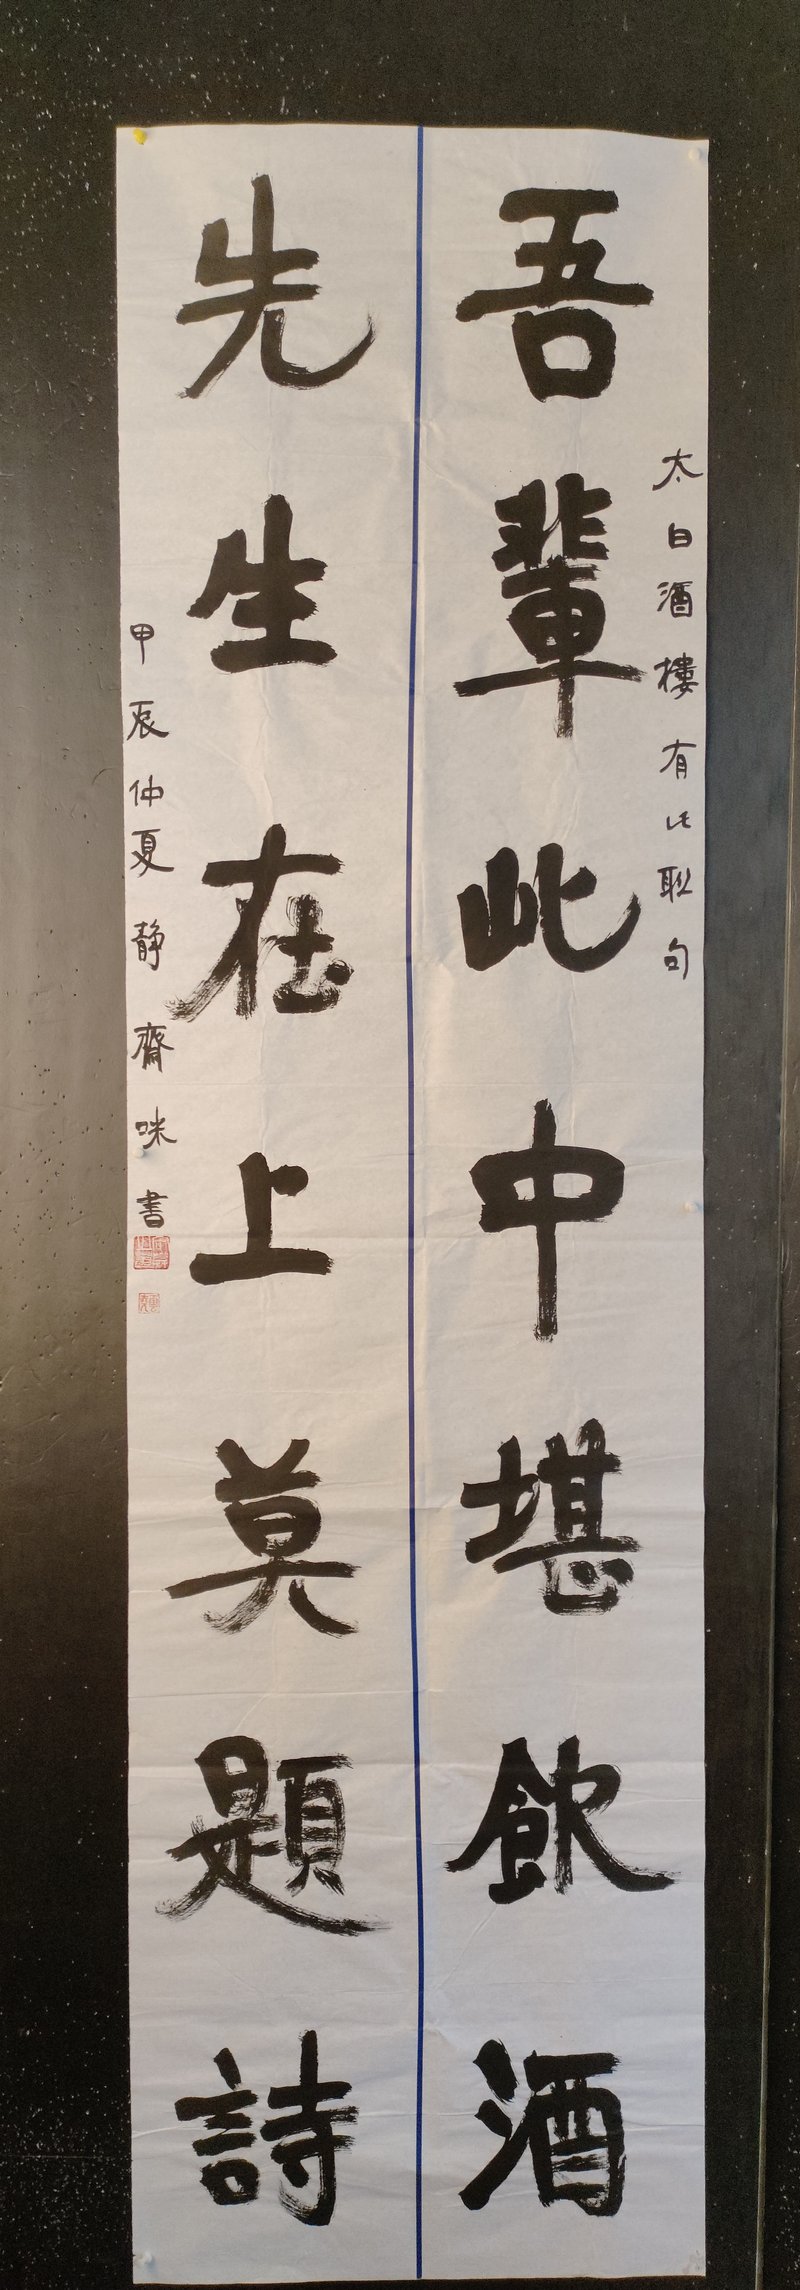 太白酒樓有此联句
吾輩此中堪飲酒
先生在上莫題詩
甲辰仲夏靜齋咪書